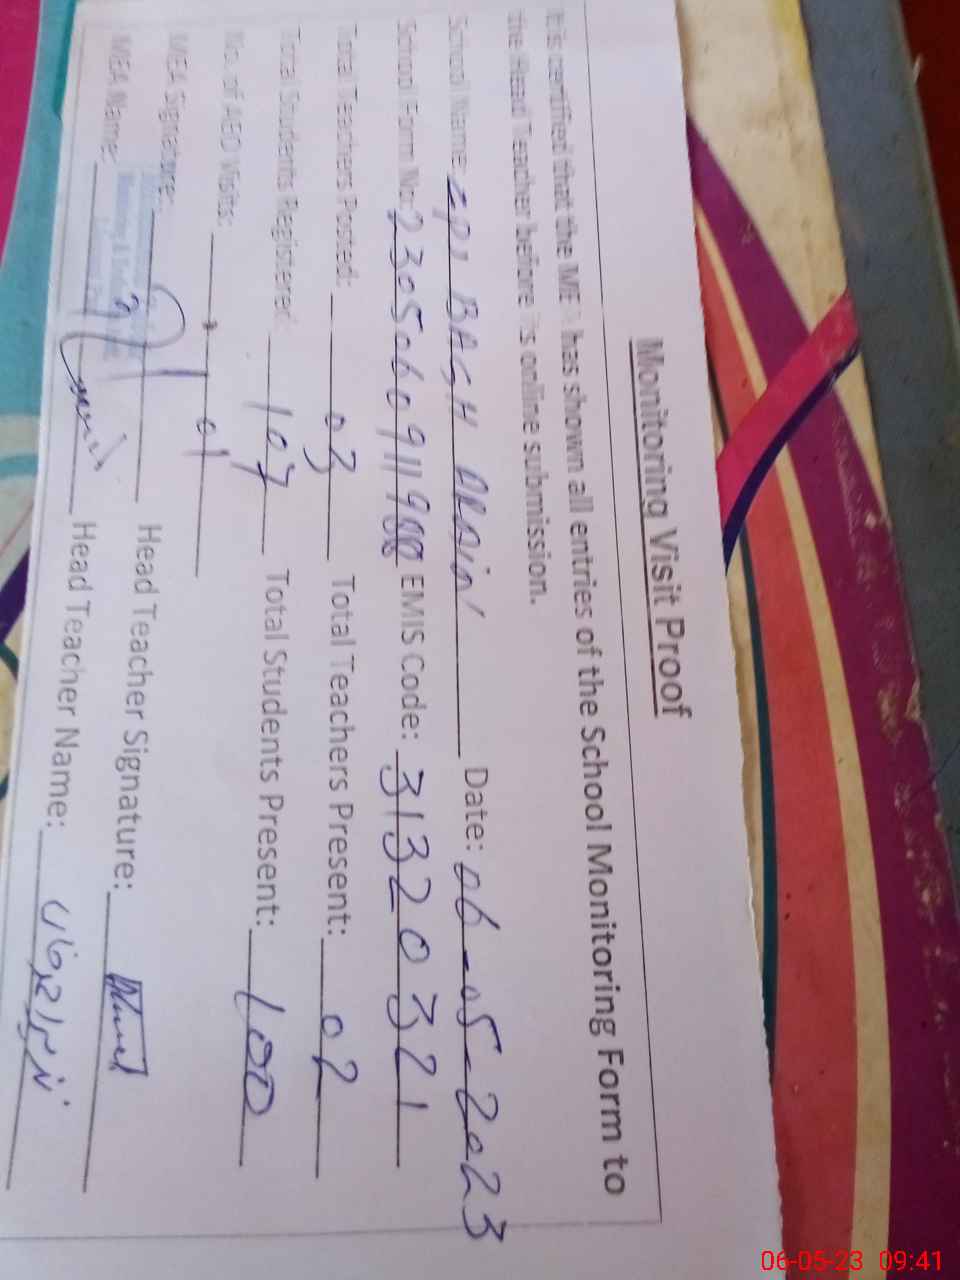 Monitoring Visit Proof
It is certified that the MEA has shown all entries of the School Monitoring Form to
the Head Teacher before its online submission.
School Name: BAGH ARAIN Date: 06-05-2023
School Form No: EMIS Code: 31320321
Total Teachers Posted: 03 Total Teachers Present: 02
Total Students Registered: 107 Total Students Present: 100
No. of AEO Visits: 01
MEA Signature: Head Teacher Signature:
MEA Name: Head Teacher Name:
06-05-23 09:41